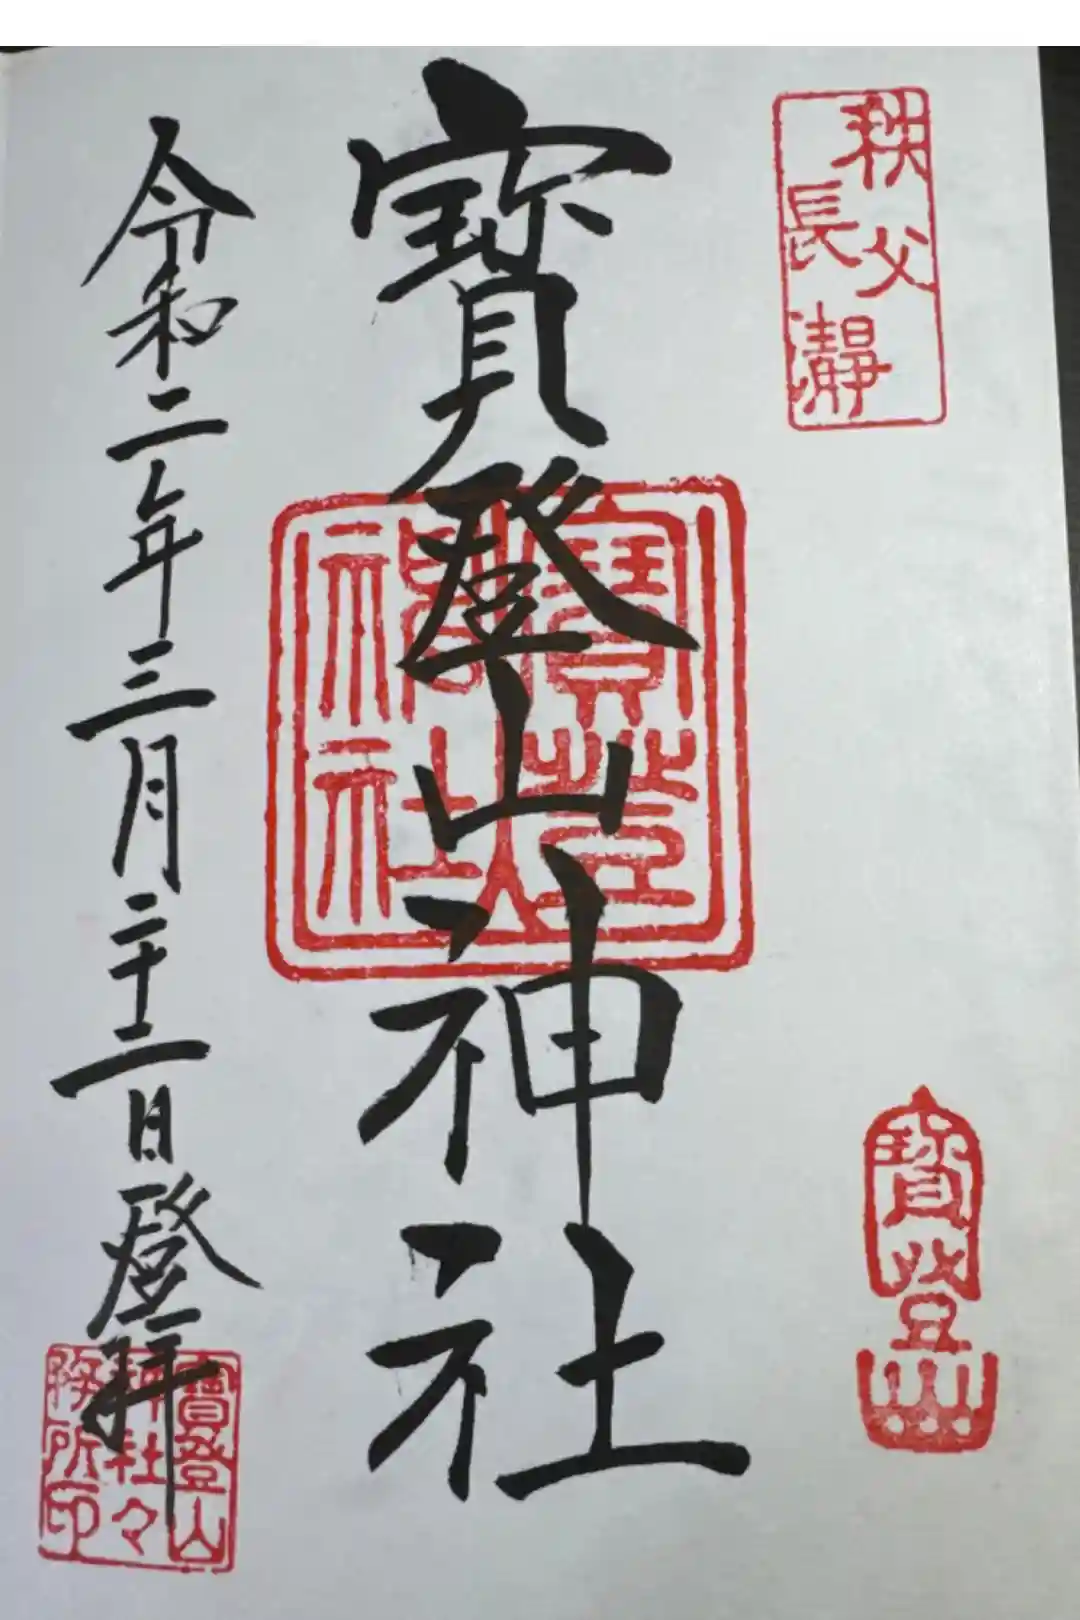 秩父
長瀞
寶登山
寶登山神社
寶登山
神社
令和二年三月二十二日登拝
寶登山
神社々
務所印